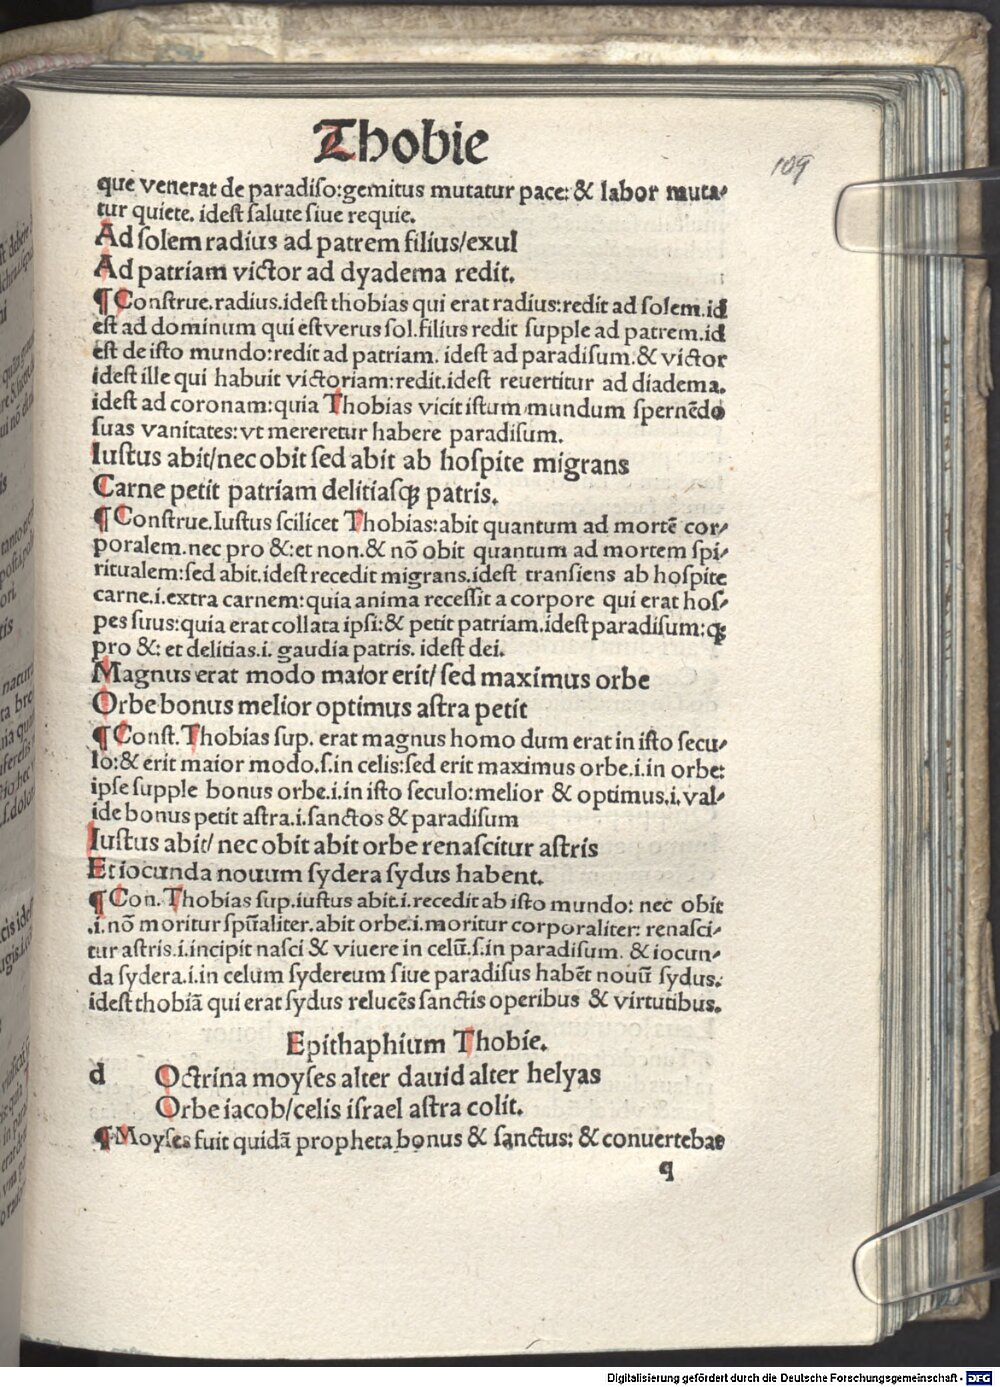 Thobie
109
que venerat de paradiso:gemitus mutatur pace: & labor muta-
tur quiete. idest salute siue requie.
Ad solem radius ad patrem filius/exul
Ad patriam victor ad dyadema redit.
¶ Construe.radius.idest thobias qui erat radius:redit ad solem.id
est ad dominum qui est verus sol.filius redit supple ad patrem.id
est de isto mundo:redit ad patriam. idest ad paradisum.& victor
idest ille qui habuit victoriam:redit.idest reuertitur ad diadema.
idest ad coronam:quia Thobias vicit istum mundum spernēdo
suas vanitates:vt mereretur habere paradisum.
Iustus abit/nec obit sed abit ab hospite migrans
Carne petit patriam delitiasqȝ patris.
¶ Construe.Iustus scilicet Thobias:abit quantum ad mortē cor-
poralem.nec pro &:et non.& nō obit quantum ad mortem spi-
ritualem:sed abit.idest recedit migrans.idest transiens ab hospite
carne.i.extra carnem:quia anima recessit a corpore qui erat hos-
pes suus:quia erat collata ipsi:& petit patriam.idest paradisum:qȝ
pro &: et delitias.i. gaudia patris. idest dei.
Magnus erat modo maior erit/ sed maximus orbe
Orbe bonus melior optimus astra petit
¶ Const.Thobias sup. erat magnus homo dum erat in isto secu-
lo:& erit maior modo.s.in celis:sed erit maximus orbe.i.in orbe:
ipse supple bonus orbe.i.in isto seculo:melior & optimus.i.val-
ide bonus petit astra.i.sanctos & paradisum
Iustus abit/ nec obit abit orbe renascitur astris
Et iocunda nouum sydera sydus habent.
¶ Con.Thobias sup.iustus abit.i.recedit ab isto mundo: nec obit
.i.nō moritur spūaliter.abit orbe.i.moritur corporaliter: renasci-
tur astris.i.incipit nasci & viuere in celū.s.in paradisum. & iocun-
da sydera.i.in celum sydereum siue paradisus habēt nouū sydus.
idest thobiā qui erat sydus relucēs sanctis operibus & virtutibus.
Epithaphium Thobie.
d Octrina moyses alter dauid alter helyas
Orbe iacob/celis israel astra colit.
¶ Moyses fuit quidā propheta bonus & sanctus: & conuertebat
q
Digitalisierung gefördert durch die Deutsche Forschungsgemeinschaft - DFG